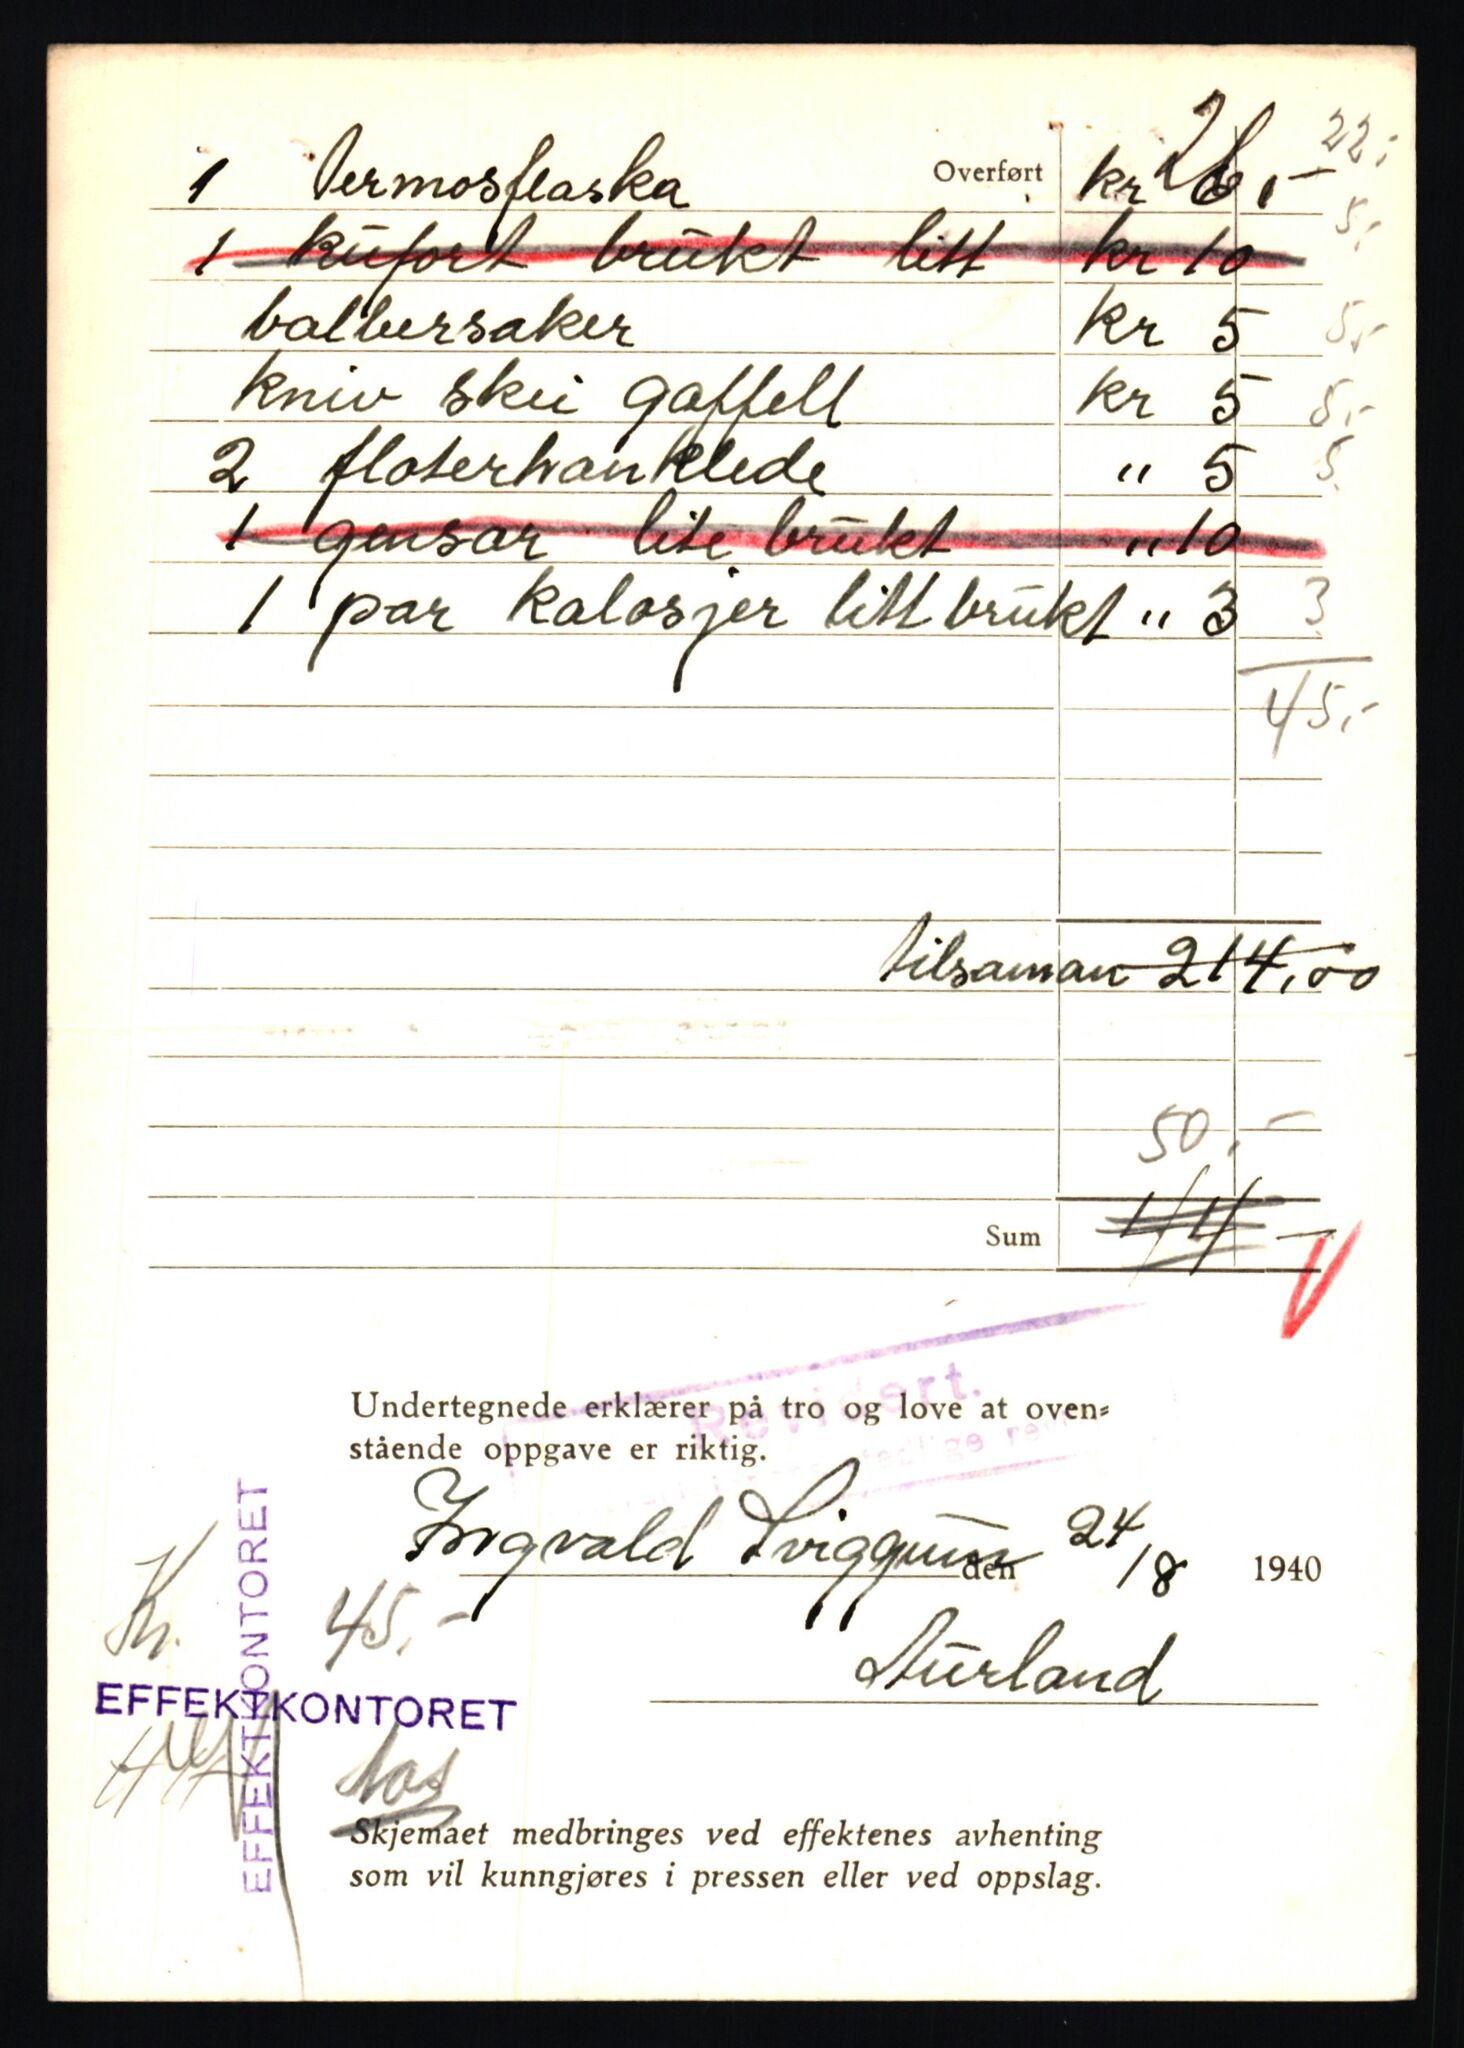 22,-
1 termosflaska Overført kr 6,-
5,-
1 kufort brukt litt kr 10
balbersaker kr 5 5,-
kniv skei gaffell kr 5 5,-
2 floterhanklede " 5 5
1 gensar lite brukt " 10
1 par kalosjer litt brukt " 3 3
45,-
tilsaman 214,00
50,-
Sum 141 -
Revidert.
Undertegnede erklærer på tro og love at oven=
stående oppgave er riktig.
Ingvald Sviggum den 24/8 1940
Kr. 45,-
Aurland
EFFEKTKONTORET
EFFEKTKONTORET
Skjemaet medbringes ved effektenes avhenting
som vil kunngjøres i pressen eller ved oppslag.